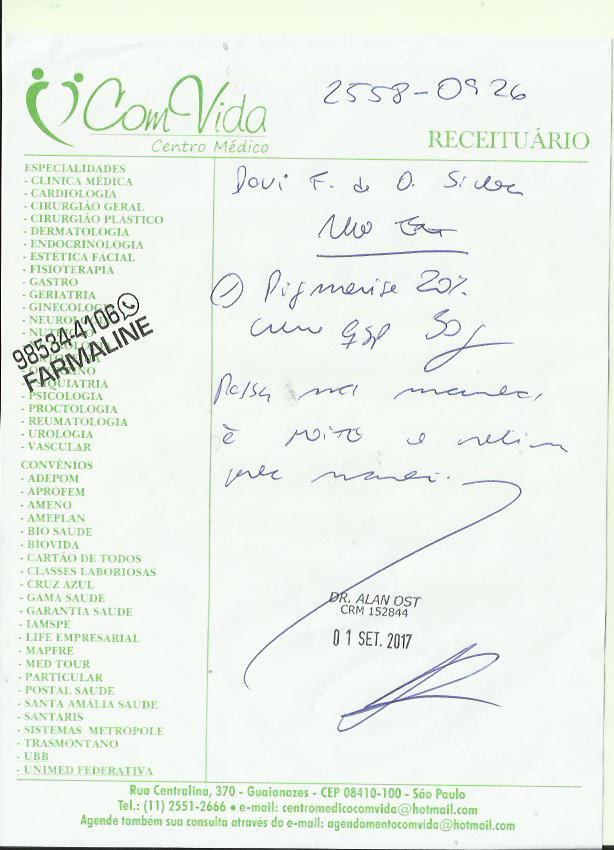 ComVida
Centro Médico
2558-0926
RECEITUÁRIO
ESPECIALIDADES
- CLINICA MÉDICA
- CARDIOLOGIA
- CIRURGIÃO GERAL
- CIRURGIÃO PLASTICO
- DERMATOLOGIA
- ENDOCRINOLOGIA
- ESTÉTICA FACIAL
- FISIOTERAPIA
- GASTRO
- GERIATRIA
- PSICOLOGIA
- PROCTOLOGIA
- REUMATOLOGIA
- UROLOGIA
- VASCULAR
98534-4106
FARMALINE
CONVÊNIOS
- ADEPOM
- APROFEM
- AMENO
- AMEPLAN
- BIO SAUDE
- BIOVIDA
- CARTÃO DE TODOS
- CLASSES LABORIOSAS
- CRUZ AZUL
- GAMA SAUDE
- GARANTIA SAUDE
- IAMSPE
- LIFE EMPRESARIAL
- MAPFRE
- MED TOUR
- PARTICULAR
- POSTAL SAUDE
- SANTA AMALIA SAUDE
- SANTARIS
- SISTEMAS METROPOLE
- TRASMONTANO
- UBB
- UNIMED FEDERATIVA
Davi F. de O. Silva
Uso
1 20%
creme qsp 30g
Passar na
noite e
DR. ALAN OST
CRM 152844
01 SET. 2017
Rua Centralina, 370 - Guaianazes - CEP 08410-100 - São Paulo
Tel.: (11) 2551-2666 • e-mail: centromedicocomvida@hotmail.com
Agende também sua consulta através do e-mail: agendamentocomvida@hotmail.com